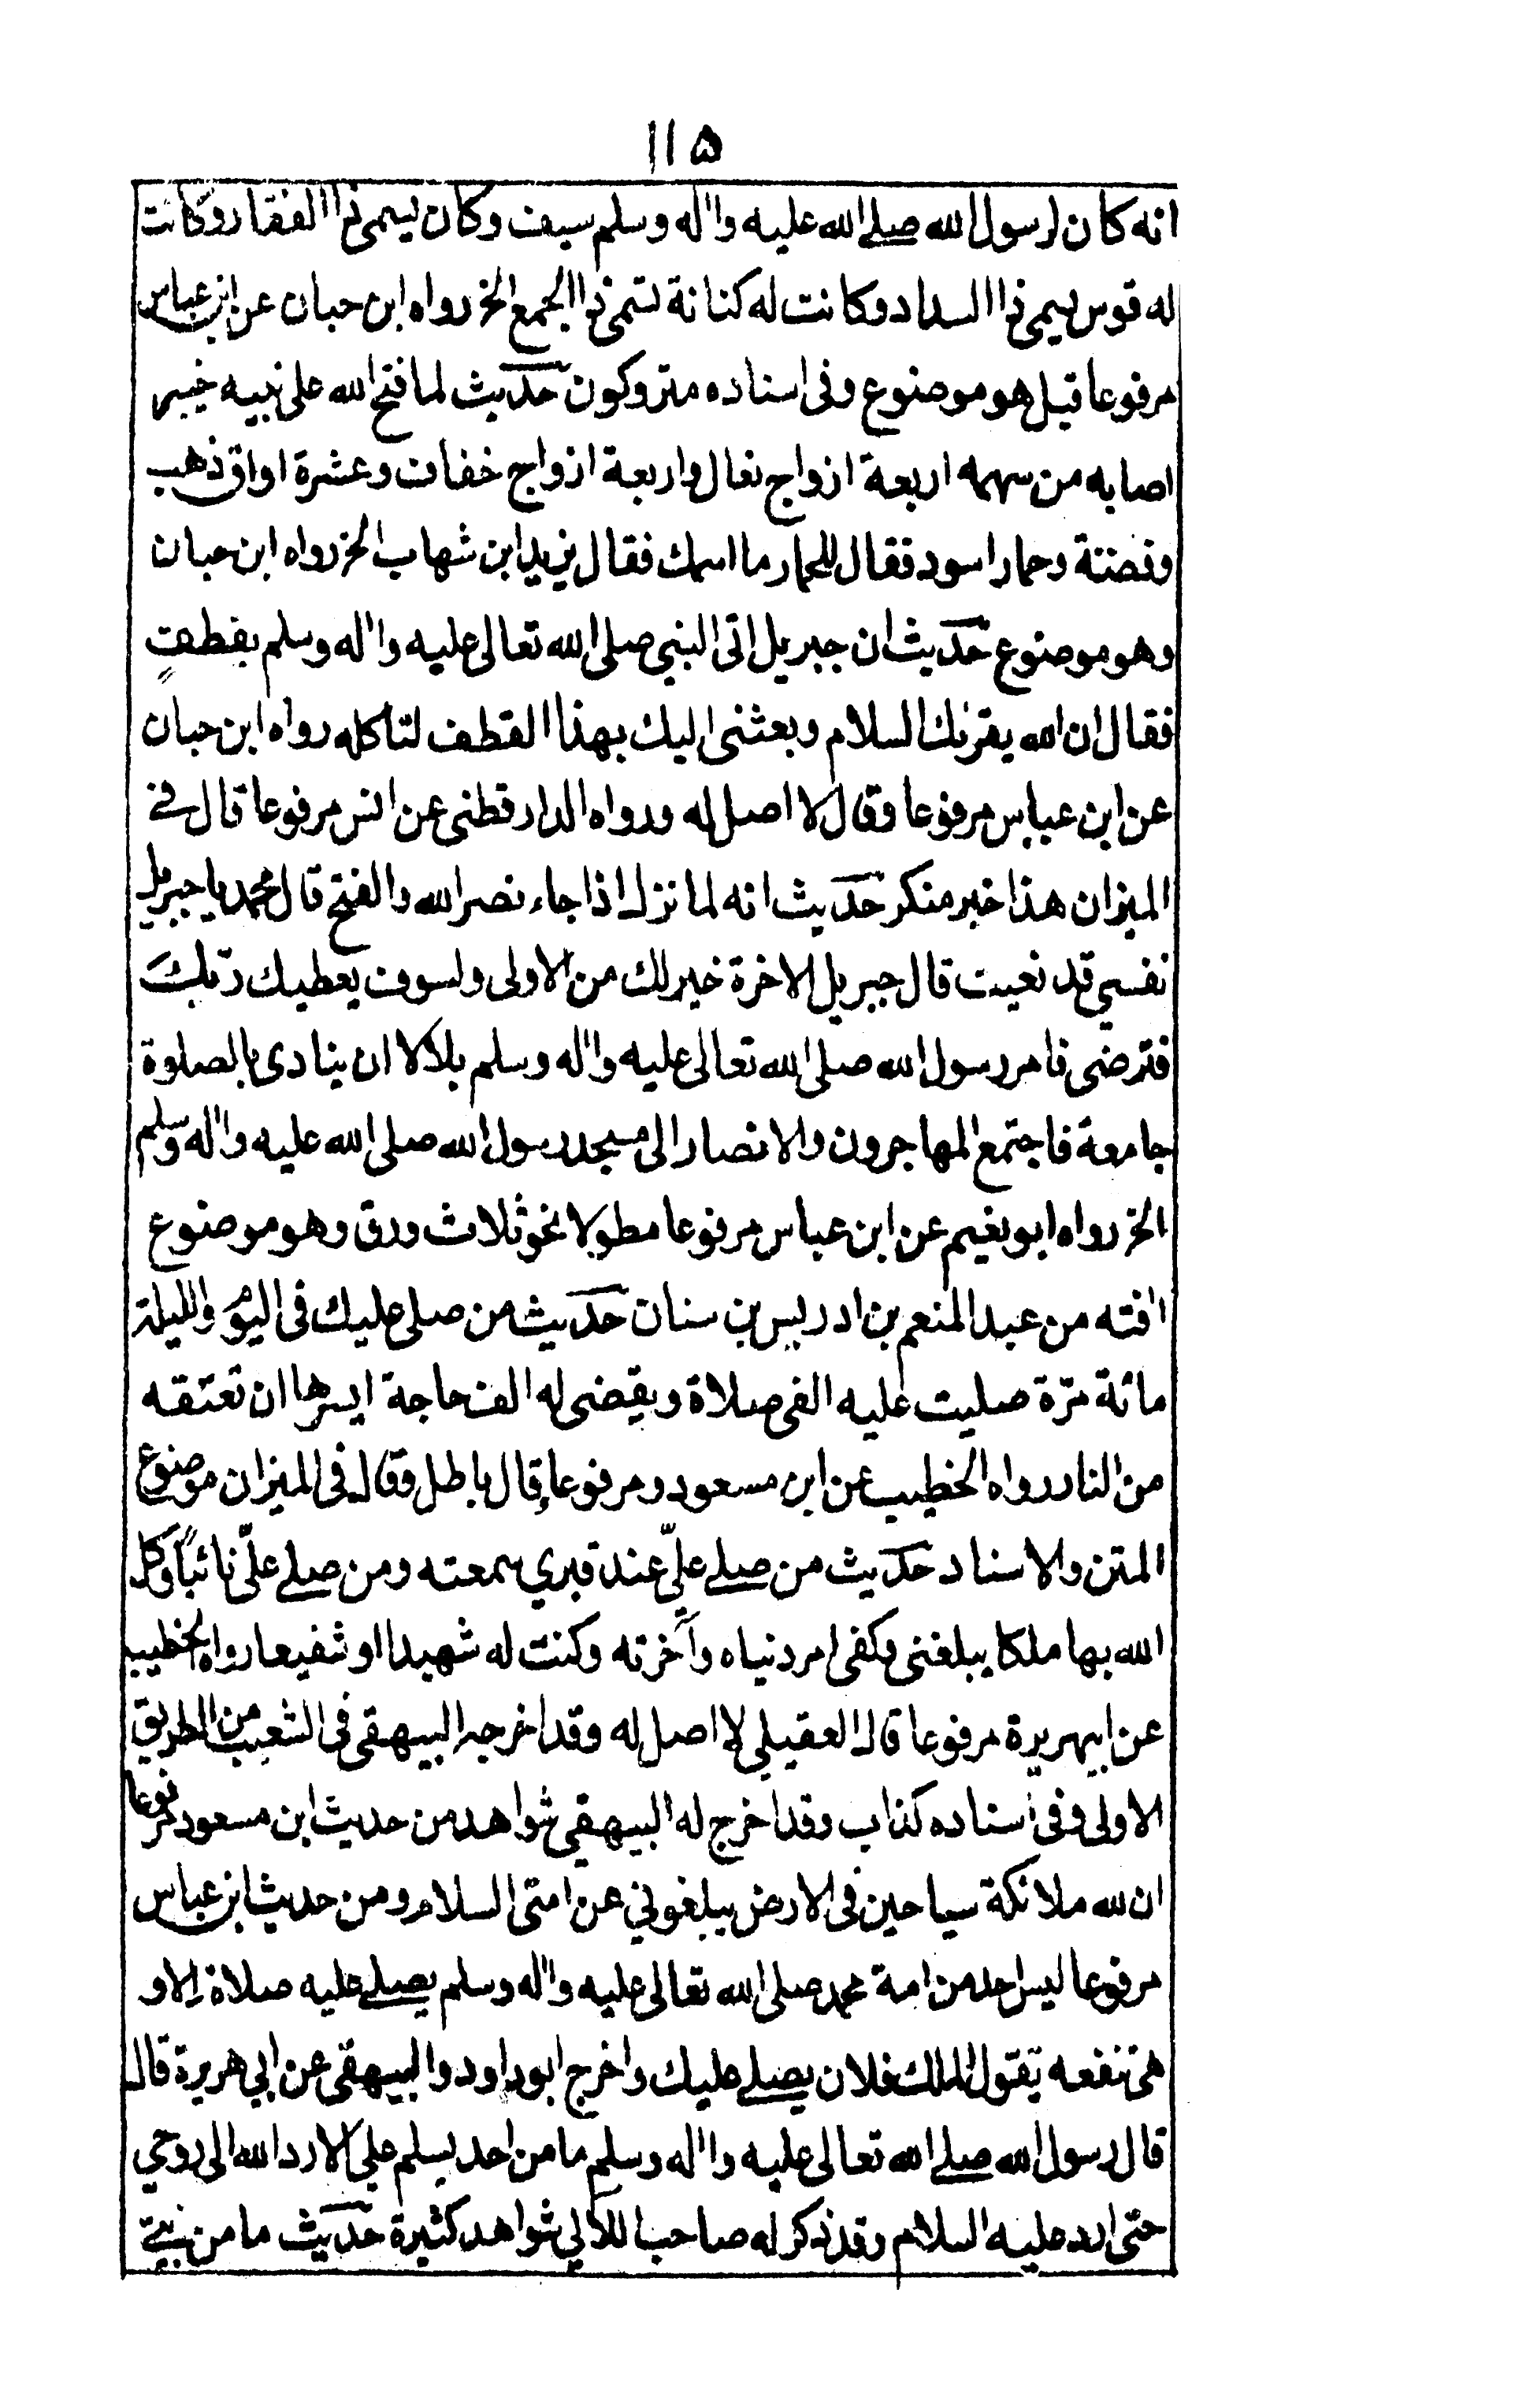 ۱۱۵
انه كان لرسول الله صلے الله عليه واٰله وسلم سيف وكان يسمى ذا الفقار وكانت
له قوس يسمى ذا السداد وكانت له كنانة تسمى ذا الجمع الخ رواه ابن حبان عن ابن عباس
مرفوعا قيل هو موضوع وفى اسناده متروكون حديث لما فتح الله على نبيه خيبر
اصابه من سهمه اربعة ازواج نعال واربعة ازواج خفاف وعشرة اواق ذهب
وفضة وحمار اسود فقال للحمار ما اسمك فقال يزيد ابن شهاب الخ رواه ابن حبان
وهو موضوع حديث ان جبريل اتى النبي صلى الله تعالى عليه واٰله وسلم بقطف
فقال ان الله يقرئك السلام وبعثنى اليك بهذا القطف لتاكله رواه ابن حبان
عن ابن عباس مرفوعا وقال لا اصل له ورواه الدار قطنى عن انس مرفوعا قال فے
الميزان هذا خبر منكر حديث انه لما نزل اذا جاء نصر الله والفتح قال محمد يا جبريل
نفسي قد نعيت قال جبريل الاخرة خير لك من الاولى ولسوف يعطيك ربك
فترضى فامر رسول الله صلى الله تعالى عليه واٰله وسلم بلالا ان ينادى بالصلوة
جامعة فاجتمع المهاجرون والانصار الى مسجد رسول الله صلى الله عليه واٰله وسلم
الخ رواه ابو نعيم عن ابن عباس مرفوعا مطولا نحو ثلاث ورق وهو موضوع
اٰفته من عبد المنعم بن ادريس بن سنان حديث من صلى عليك فى اليوم والليلة
مائة مرّة صليت عليه الفى صلاة ويقضى له الف حاجة ايسرها ان تعتقه
من النار رواه الخطيب عن ابن مسعود مرفوعا وقال باطل وقال فى الميزان موضوع
المتن والاسناد حديث من صلے علىّ عند قبري سمعته ومن صلے علىّ نائياً وكل
الله بها ملكا يبلغنى وكفى امر دنياه وآخرته وكنت له شهيدا او شفيعا رواه الخطيب
عن ابيهريرة مرفوعا قال العقيلي لا اصل له وقد اخرجه البيهقى فى الشعب من الطريق
الاولى وفى اسناده كذاب وقد اخرج له البيهقي شواهد من حديث ابن مسعود مرفوعا
ان لله ملائكة سياحين فى الارض يبلغوني عن امتى السلام ومن حديث ابن عباس
مرفوعا ليس احد من امة محمد صلى الله تعالى عليه واٰله وسلم يصلے عليه صلاة الا و
هى تنفعه يقول الملك فلان يصلے عليك واخرج ابو داود والبيهقى عن ابي هريرة قال
قال رسول الله صلے الله تعالى عليه واٰله وسلم ما من احد يسلم علي الا رد الله الى روحي
حتى ارد عليه السلام وقد ذكر له صاحب اللآلي شواهد كثيرة حديث ما من نبيے